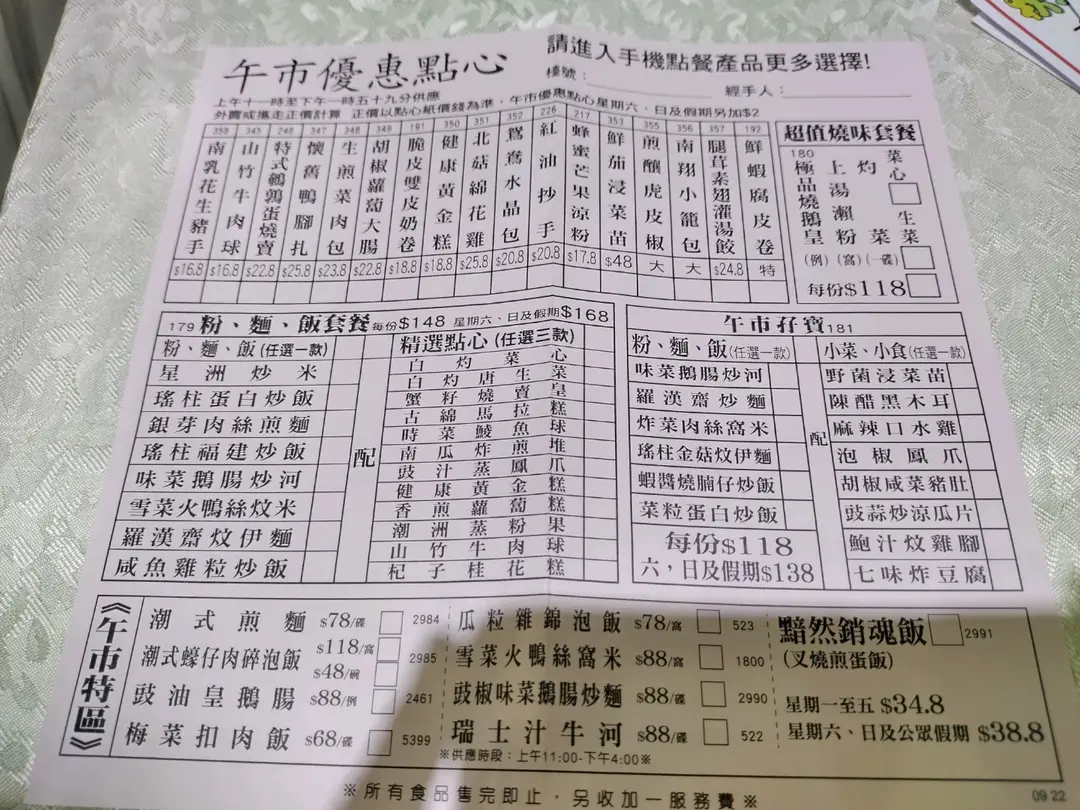 請進入手機點餐產品更多選擇!
午市優惠點心
檯號：
經手人：
上午十一時至下午一時五十九分供應
外賣或攜走正價計算 正價以點心紙價錢為準，午市優惠點心星期六、日及假期另加$2
358 南乳花生豬手 $16.8
345 山竹牛肉球 $16.8
248 特式鵪鶉蛋燒賣 $22.8
347 懷舊鴨腳扎 $25.8
348 生煎菜肉包 $23.8
349 胡椒蘿蔔大腸 $22.8
191 脆皮雙皮奶卷 $18.8
350 健康黃金糕 $18.8
351 北菇綿花雞 $25.8
352 鴛鴦水晶包 $20.8
226 紅油抄手 $20.8
217 蜂蜜芒果涼粉 $17.8
353 鮮茄浸菜苗 $48
355 煎釀虎皮椒 大
356 南翔小籠包 大
357 腿茸素翅灌湯餃 $24.8
192 鮮蝦腐皮卷 特
超值燒味套餐
180 極品燒鵝皇 (例)
上湯瀨粉 (窩)
灼菜 (一碟)
菜心
生菜
每份$118
179 粉、麵、飯套餐 每份$148 星期六、日及假期$168
粉、麵、飯 (任選一款)
星洲炒米
瑤柱蛋白炒飯
銀芽肉絲煎麵
瑤柱福建炒飯
味菜鵝腸炒河
雪菜火鴨絲炆米
羅漢齋炆伊麵
咸魚雞粒炒飯
配
精選點心 (任選三款)
白灼菜心
白灼唐生菜
蟹籽燒賣皇
古綿馬拉糕
時菜鯪魚球
南瓜炸煎堆
豉汁蒸鳳爪
健康黃金糕
香煎蘿蔔糕
潮洲蒸粉果
山竹牛肉球
杞子桂花糕
午市孖寶 181
粉、麵、飯(任選一款)
味菜鵝腸炒河
羅漢齋炒麵
炸菜肉絲窩米
瑤柱金菇炆伊麵
蝦醬燒腩仔炒飯
菜粒蛋白炒飯
每份$118
六，日及假期$138
配
小菜、小食(任選一款)
野菌浸菜苗
陳醋黑木耳
麻辣口水雞
泡椒鳳爪
胡椒咸菜豬肚
豉蒜炒涼瓜片
鮑汁炆雞腳
七味炸豆腐
《午市特區》
潮式煎麵 $78/碟 2984
潮式蠔仔肉碎泡飯 $118/窩 $48/碗 2985
豉油皇鵝腸 $88/例 2461
梅菜扣肉飯 $68/碟 5399
瓜粒雜錦泡飯 $78/窩 523
雪菜火鴨絲窩米 $88/窩 1800
豉椒味菜鵝腸炒麵 $88/碟 2990
瑞士汁牛河 $88/碟 522
※供應時段：上午11:00-下午4:00※
黯然銷魂飯 2991
(叉燒煎蛋飯)
星期一至五 $34.8
星期六、日及公眾假期 $38.8
※所有食品售完即止，另收加一服務費※
09 22